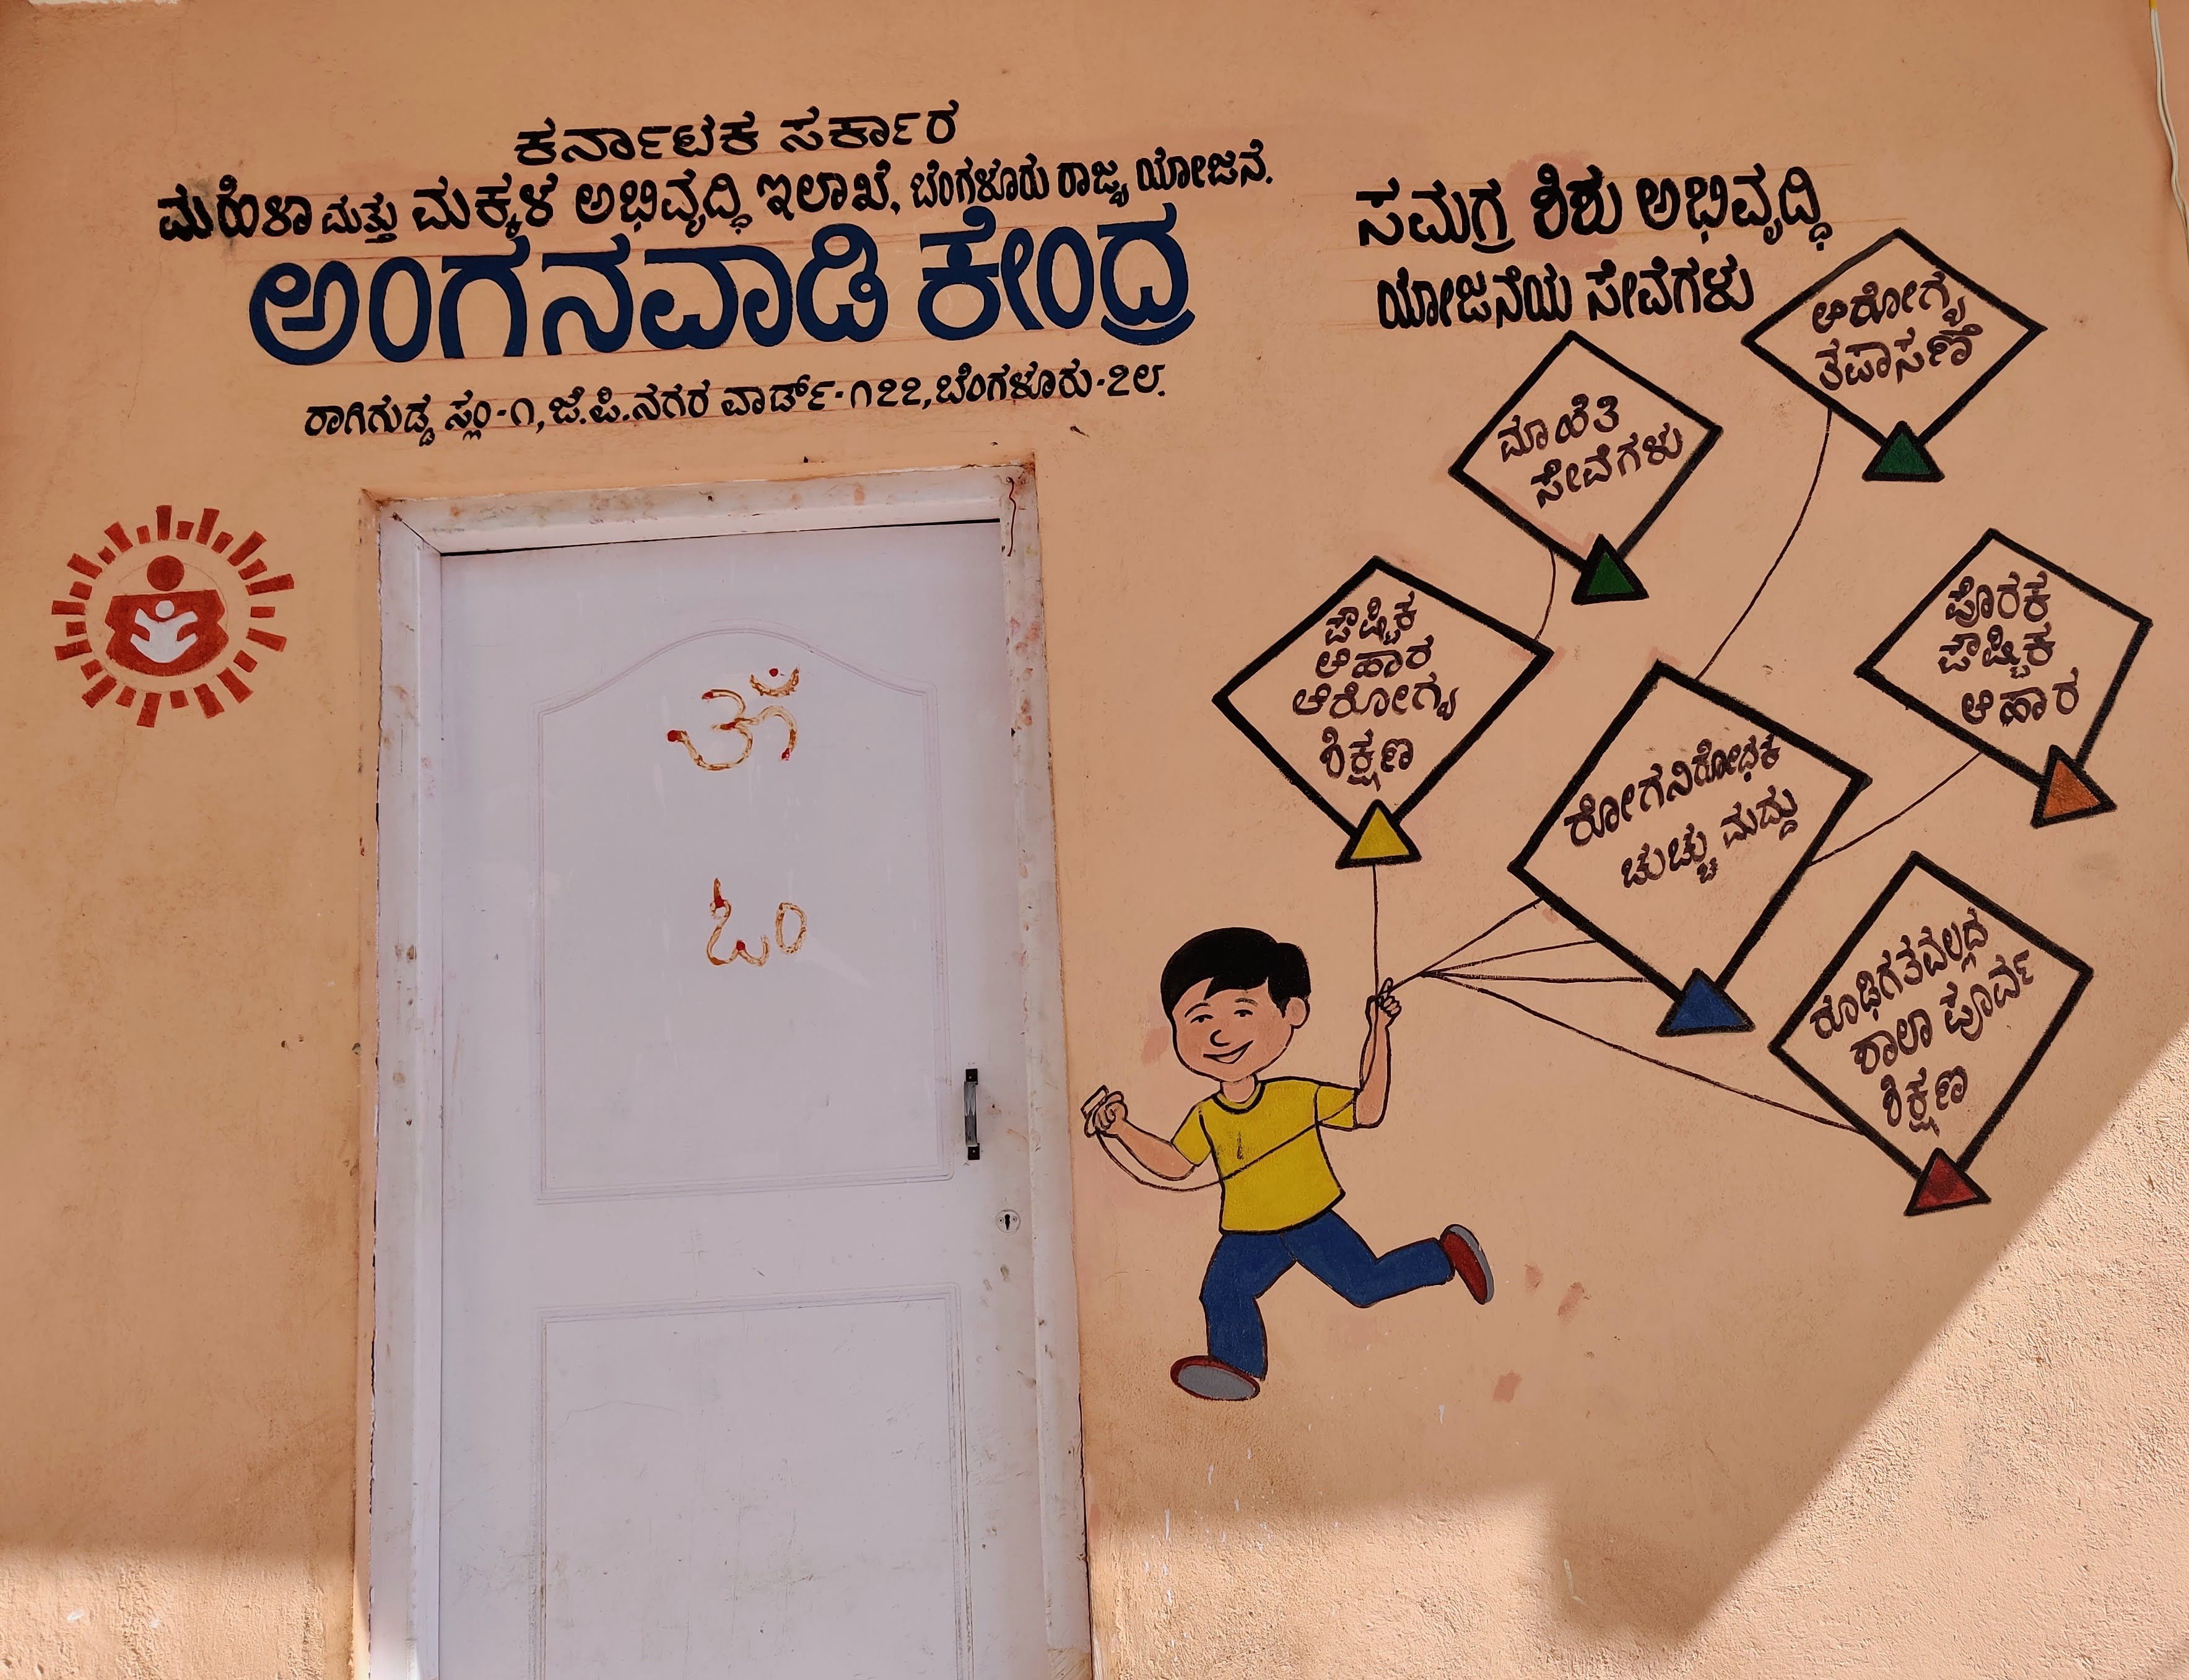 ಕರ್ನಾಟಕ ಸರ್ಕಾರ
ಮಹಿಳಾ ಮತ್ತು ಮಕ್ಕಳ ಅಭಿವೃದ್ಧಿ ಇಲಾಖೆ, ಬೆಂಗಳೂರು ರಾಜ್ಯ ಯೋಜನೆ.
ಅಂಗನವಾಡಿ ಕೇಂದ್ರ
ರಾಗಿಗುಡ್ಡ ಸ್ಲಂ-೧, ಜೆ.ಪಿ.ನಗರ ವಾರ್ಡ್-೧೭೭, ಬೆಂಗಳೂರು-೭೮.
ಸಮಗ್ರ ಶಿಶು ಅಭಿವೃದ್ಧಿ
ಯೋಜನೆಯ ಸೇವೆಗಳು
ಆರೋಗ್ಯ
ತಪಾಸಣೆ
ಮಾಹಿತಿ
ಸೇವೆಗಳು
ಪೌಷ್ಟಿಕ
ಆಹಾರ
ಆರೋಗ್ಯ
ಶಿಕ್ಷಣ
ಪೂರಕ
ಪೌಷ್ಟಿಕ
ಆಹಾರ
ರೋಗನಿರೋಧಕ
ಚುಚ್ಚು ಮದ್ದು
ರೂಢಿಗತವಲ್ಲದ
ಶಾಲಾ ಪೂರ್ವ
ಶಿಕ್ಷಣ
ॐ
ಓಂ